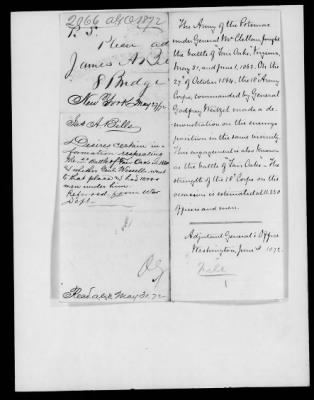 2066 A.G.O. 1872
P. S.
Please ad
James A.
8 Bridge
New York, May 29/72
Jas A. Bills
Desires certain in-
formation respecting
the 2d battle of Fair Oaks in 1864
& whether Genl
to that place & had
men under him.
Referred from War
Dept.
Recd A.G.O. May 31, 72
The Army of the Potomac
under General McClellan fought
the battle of Fair Oaks, Virginia,
May 31, and June 1, 1862. On the
27th of October 1864, the 18th Army
Corps, commanded by General
Godfrey Weitzel made a de-
monstration on the enemy's
position in the same vicinity.
This engagement is also known
as the battle of Fair Oaks. The
strength of the 18th Corps on this
occasion is estimated at
officers and men.
Adjutant General's Office
Washington, June 4 1872
File